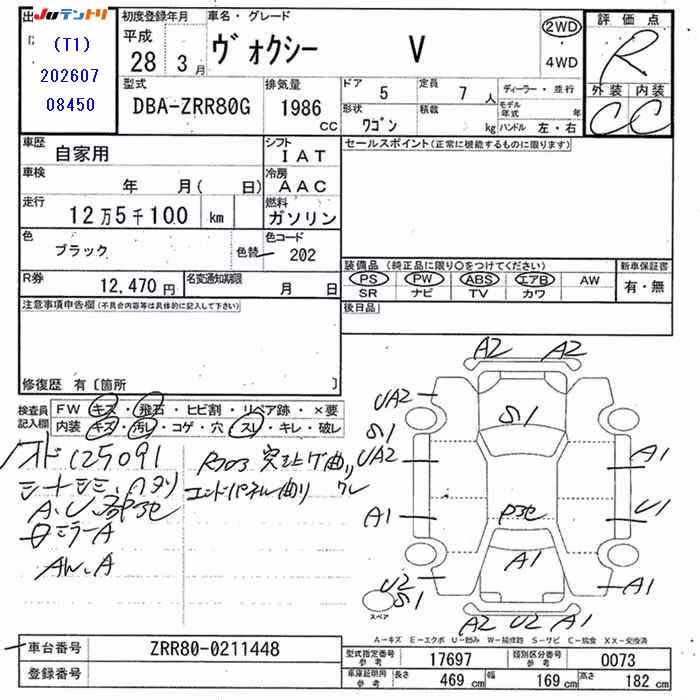 出
Juテントリ
(T1)
202607
08450
初度登録年月
平成
28年 3月
車名・グレード
ヴォクシー V
2WD
・
4WD
評価点
R
外装 内装
C C
型式
DBA-ZRR80G
排気量
1986
CC
ドア 5
定員 7人
形状 ワゴン
積載 kg
ディーラー・並行
モデル年式 年
ハンドル 左・右
車歴 自家用
シフト IAT
車検 年 月( 日)
冷房 AAC
走行 12万5千100 km
燃料 ガソリン
色 ブラック 色替
色コード 202
R券 12,470円
名変通知期限 月 日
セールスポイント(正常に機能するものに限ります)
装備品 (純正品に限り○をつけてください)
PS PW ABS エアB AW
SR ナビ TV カワ
新車保証書
有・無
後日品
注意事項申告欄(不具合内容等は具体的に記入して下さい)
修復歴 有〔箇所 〕
検査員記入欄
FW キズ・飛石・ヒビ割・リペア跡・×要
内装 キズ・汚レ・コゲ・穴・スレ・キレ・破レ
125091
シートシミ、ヘタリ
A.U.
ミラーA
AW.A
突上ゲ曲リ
エンドパネル曲リ
A2 A2
UA2
S1
S1
UA2
A1
A1
U1
A1
U2
S1
A1
A2 U2 A1
スペア
A-キズ E-エクボ U-凹み W-補修跡 S-サビ C-腐食 XX-交換済
車台番号 ZRR80-0211448
登録番号
型式指定番号 参考 17697
類別区分番号 参考 0073
車庫証明用 参考 長さ 469 cm 幅 169 cm 高さ 182 cm